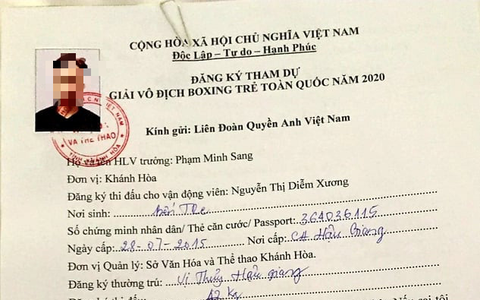 CỘNG HÒA XÃ HỘI CHỦ NGHĨA VIỆT NAM
Độc Lập – Tự do – Hạnh Phúc
ĐĂNG KÝ THAM DỰ
GIẢI VÔ ĐỊCH BOXING TRẺ TOÀN QUỐC NĂM 2020
VÀ THỂ THAO
Kính gửi: Liên Đoàn Quyền Anh Việt Nam
Họ và tên HLV trưởng: Phạm Minh Sang
Đơn vị: Khánh Hòa
Đăng ký thi đấu cho vận động viên: Nguyễn Thị Diễm Xương
Nơi sinh: Bến Tre
Số chứng minh nhân dân/ Thẻ căn cước/ Passport: 364036115
Ngày cấp: 28-07-2015 Nơi cấp: CA Hậu Giang
Đơn vị Quản lý: Sở Văn Hóa và Thể thao Khánh Hòa.
Đăng ký thường trú: Vị Thủy Hậu giang